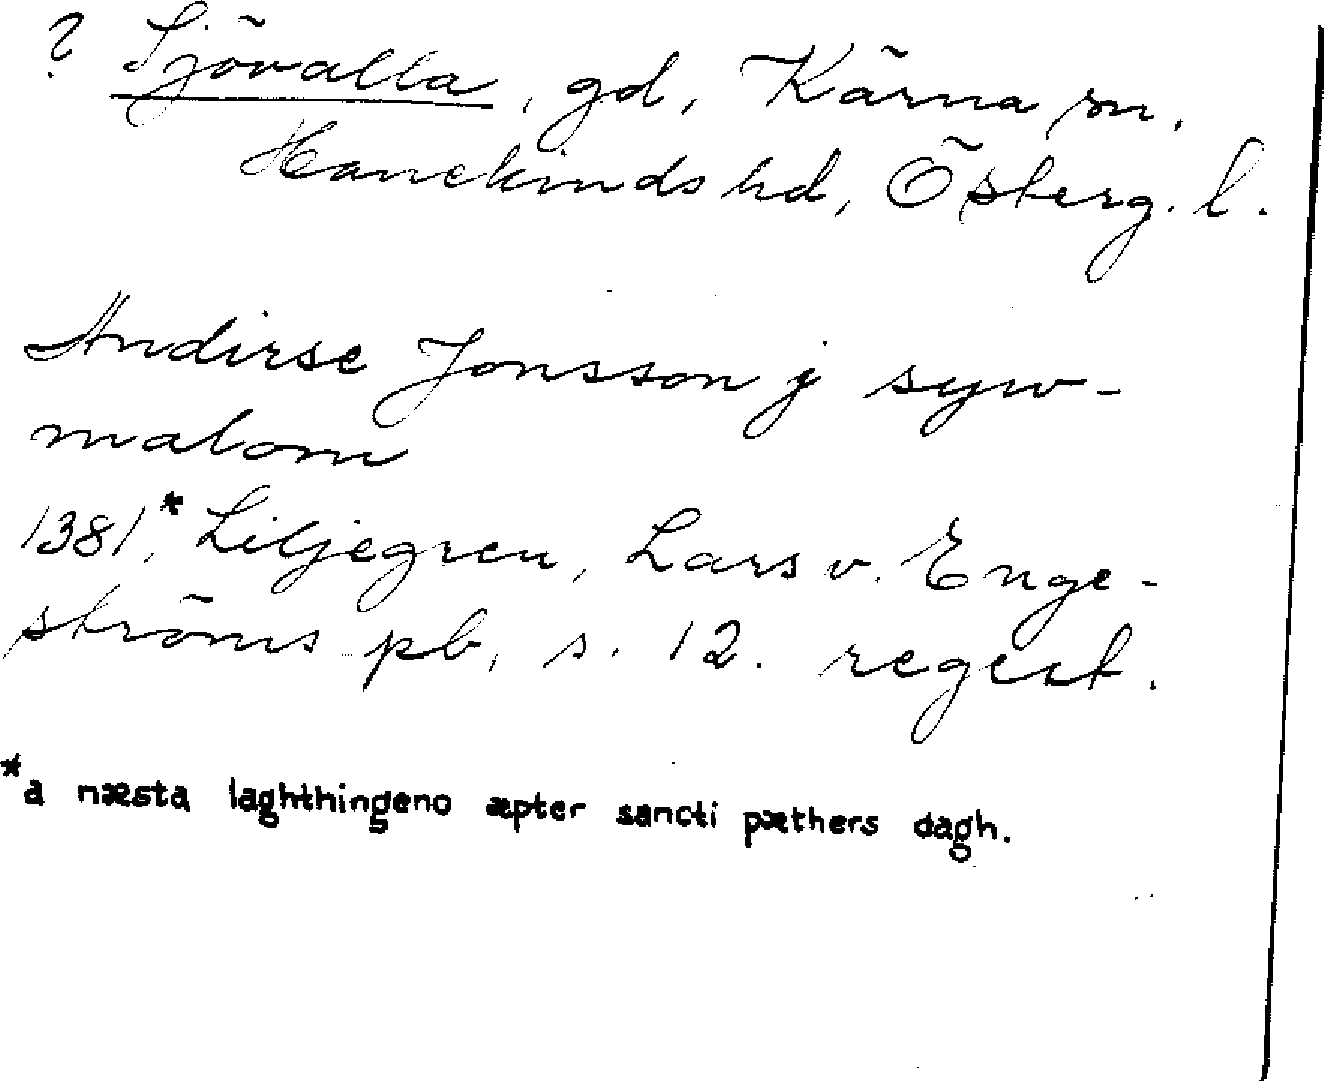 ? Sjövalla, gd, Kärna sn.
Hanekinds hd, Österg. l.
Andirse Jonsson j syw-
malom
1381*, Liljegren, Lars v. Enge-
ströms pb, s. 12. regest.
*a næsta laghthingeno æpter sancti pæthers dagh.